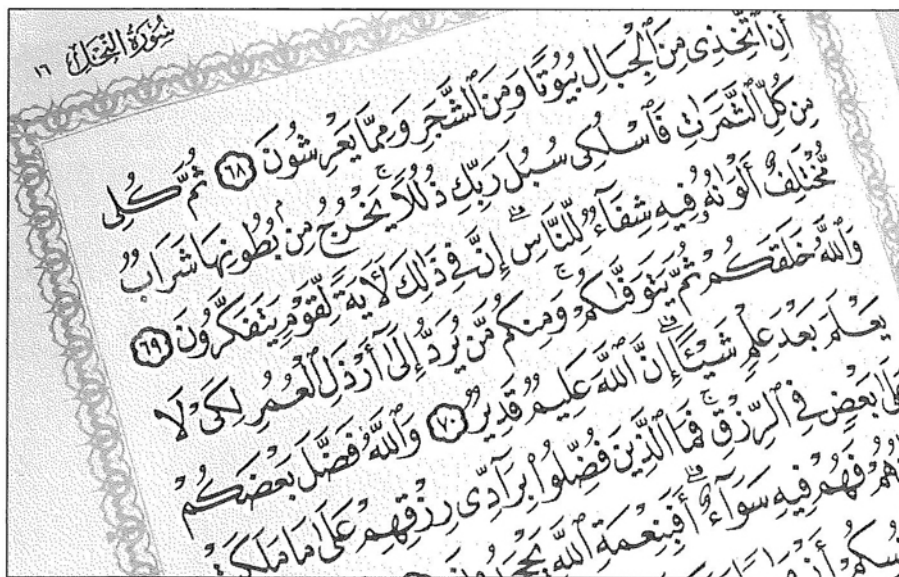 سُورَةُ النَّحْلِ ١٦
أَنِ ٱتَّخِذِى مِنَ ٱلْجِبَالِ بُيُوتًا وَمِنَ ٱلشَّجَرِ وَمِمَّا يَعْرِشُونَ ٦٨ ثُمَّ كُلِى
مِن كُلِّ ٱلثَّمَرَٰتِ فَٱسْلُكِى سُبُلَ رَبِّكِ ذُلُلًا ۚ يَخْرُجُ مِنۢ بُطُونِهَا شَرَابٌ
مُّخْتَلِفٌ أَلْوَٰنُهُۥ فِيهِ شِفَآءٌ لِّلنَّاسِ ۗ إِنَّ فِى ذَٰلِكَ لَأَيَةً لِّقَوْمٍ يَتَفَكَّرُونَ ٦٩
وَٱللَّهُ خَلَقَكُمْ ثُمَّ يَتَوَفَّىٰكُمْ ۚ وَمِنكُم مَّن يُرَدُّ إِلَىٰٓ أَرْذَلِ ٱلْعُمُرِ لِكَىْ لَا
يَعْلَمَ بَعْدَ عِلْمٍ شَيْـًٔا ۗ إِنَّ ٱللَّهَ عَلِيمٌ قَدِيرٌ ٧٠ وَٱللَّهُ فَضَّلَ بَعْضَكُمْ
بَعْضٍ فِى ٱلرِّزْقِ ۚ فَمَا ٱلَّذِينَ فُضِّلُوا۟ بِرَآدِّى رِزْقِهِمْ عَلَىٰ مَا مَلَكَتْ
فَهُمْ فِيهِ سَوَآءٌ ۚ أَفَبِنِعْمَةِ ٱللَّهِ يَجْحَدُونَ